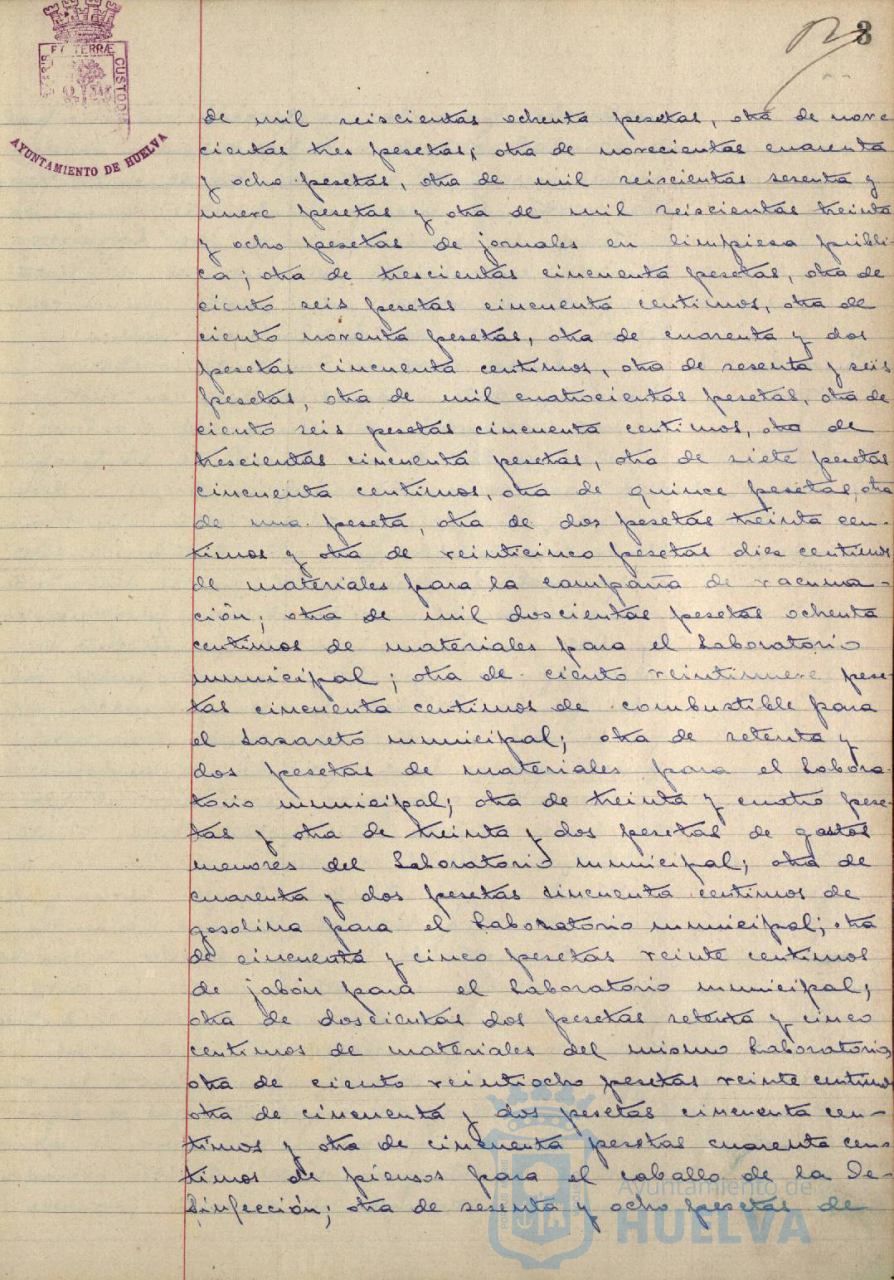 3
PORTUS MARIS ET TERRÆ CUSTODIA
AYUNTAMIENTO DE HUELVA
de mil seiscientas ochenta pesetas, otra de nove
cientas tres pesetas; otra de novecientas cuarenta
y ocho pesetas, otra de mil seiscientas sesenta y
nueve pesetas y otra de mil seiscientas treinta
y ocho pesetas de jornales en limpiesa públi-
ca; otra de trescientas cincuenta pesetas, otra de
ciento seis pesetas cincuenta centimos, otra de
ciento noventa pesetas, otra de cuarenta y dos
pesetas cincuenta centimos, otra de sesenta y seis
pesetas, otra de mil cuatrocientas pesetas, otra de
ciento seis pesetas cincuenta centimos, otra de
trescientas cincuenta pesetas, otra de siete pesetas
cincuenta centimos, otra de quince pesetas, otra
de una peseta, otra de dos pesetas treinta cen-
timos y otra de veinticinco pesetas diez centimos
de materiales para la campaña de vacuna-
ción; otra de mil doscientas pesetas ochenta
centimos de materiales para el Laboratorio
municipal; otra de ciento veintinueve pese-
tas cincuenta centimos de combustible para
el Lazareto municipal; otra de setenta y
dos pesetas de materiales para el Labora-
torio municipal; otra de treinta y cuatro pese-
tas y otra de treinta y dos pesetas de gastos
menores del Laboratorio municipal; otra de
cuarenta y dos pesetas cincuenta centimos de
gasolina para el Laboratorio municipal; otra
de cincuenta y cinco pesetas veinte centimos
de jabón para el Laboratorio municipal;
otra de doscientas dos pesetas setenta y cinco
centimos de materiales del mismo Laboratorio,
otra de ciento veintiocho pesetas veinte centimos
otra de cincuenta y dos pesetas cincuenta cen-
timos y otra de cincuenta pesetas cuarenta cen-
timos de piensos para el caballo de la De-
sinfección; otra de sesenta y ocho pesetas de
Ayuntamiento de
HUELVA